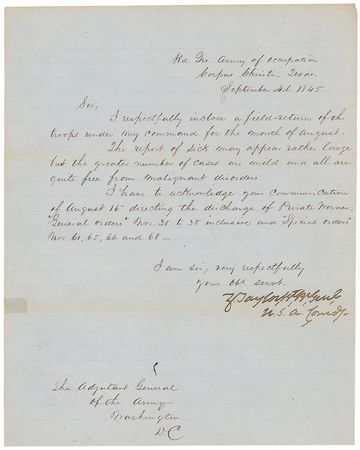 Hd Qrs Army of Occupation
Corpus Christi, Texas.
September 4th 1845
Sir,
I respectfully inclose a field-return of the
troops under my command for the month of August.
The report of sick may appear rather large
but the greater number of cases are mild and all are
quite free from malignant disorders.
I have to acknowledge your communication
of August 16th directing the discharge of Private
"General orders" Nos. 31 to 38 inclusive and "Special orders"
Nos. 61, 65, 66 and 68 —
I am sir, very respectfully
your obt servt.
Z Taylor Bt Br Genl
U.S.A. Comdg.
The Adjutant General
of the Army
Washington
D C